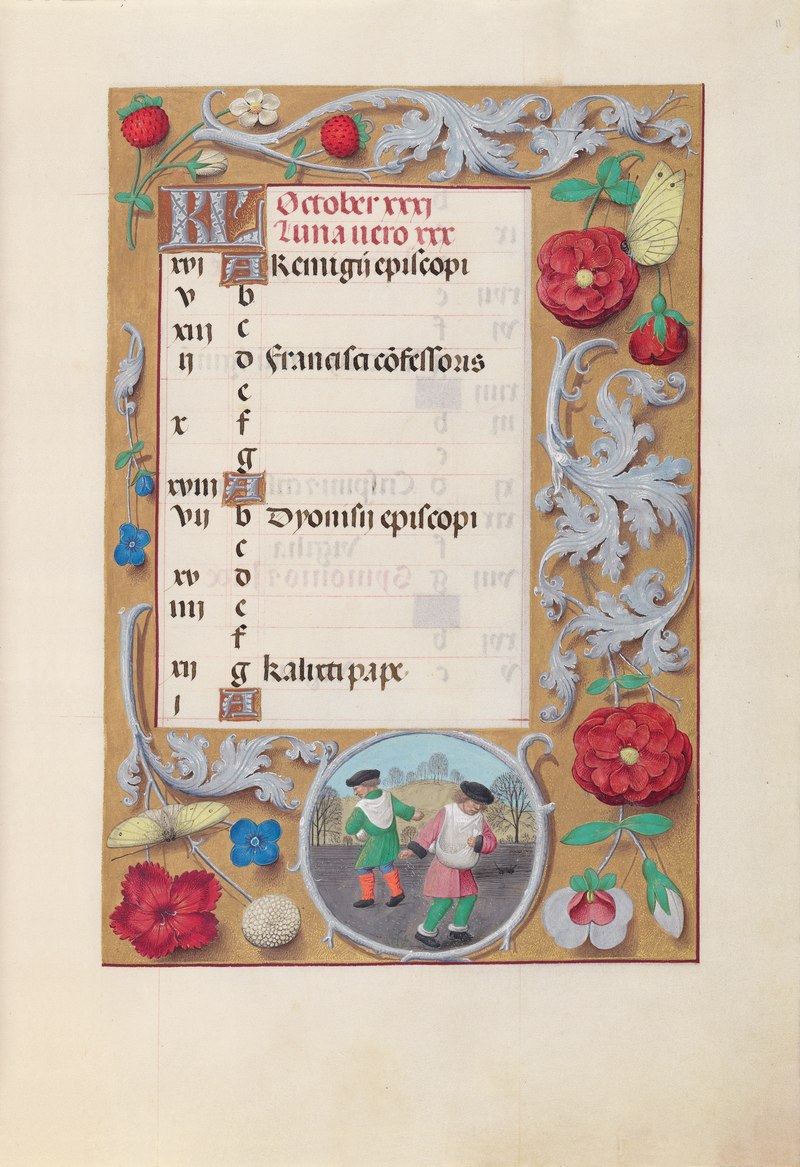 11
KL October xxxi
Luna uero xxx
xvi A Remigij episcopi
v b
xiij c
ij d Francisci cōfessoris
e
x f
g
xviii A
vij b Dyonisij episcopi
c
xv d
iiij e
f
xij g Kalixti pape
j A